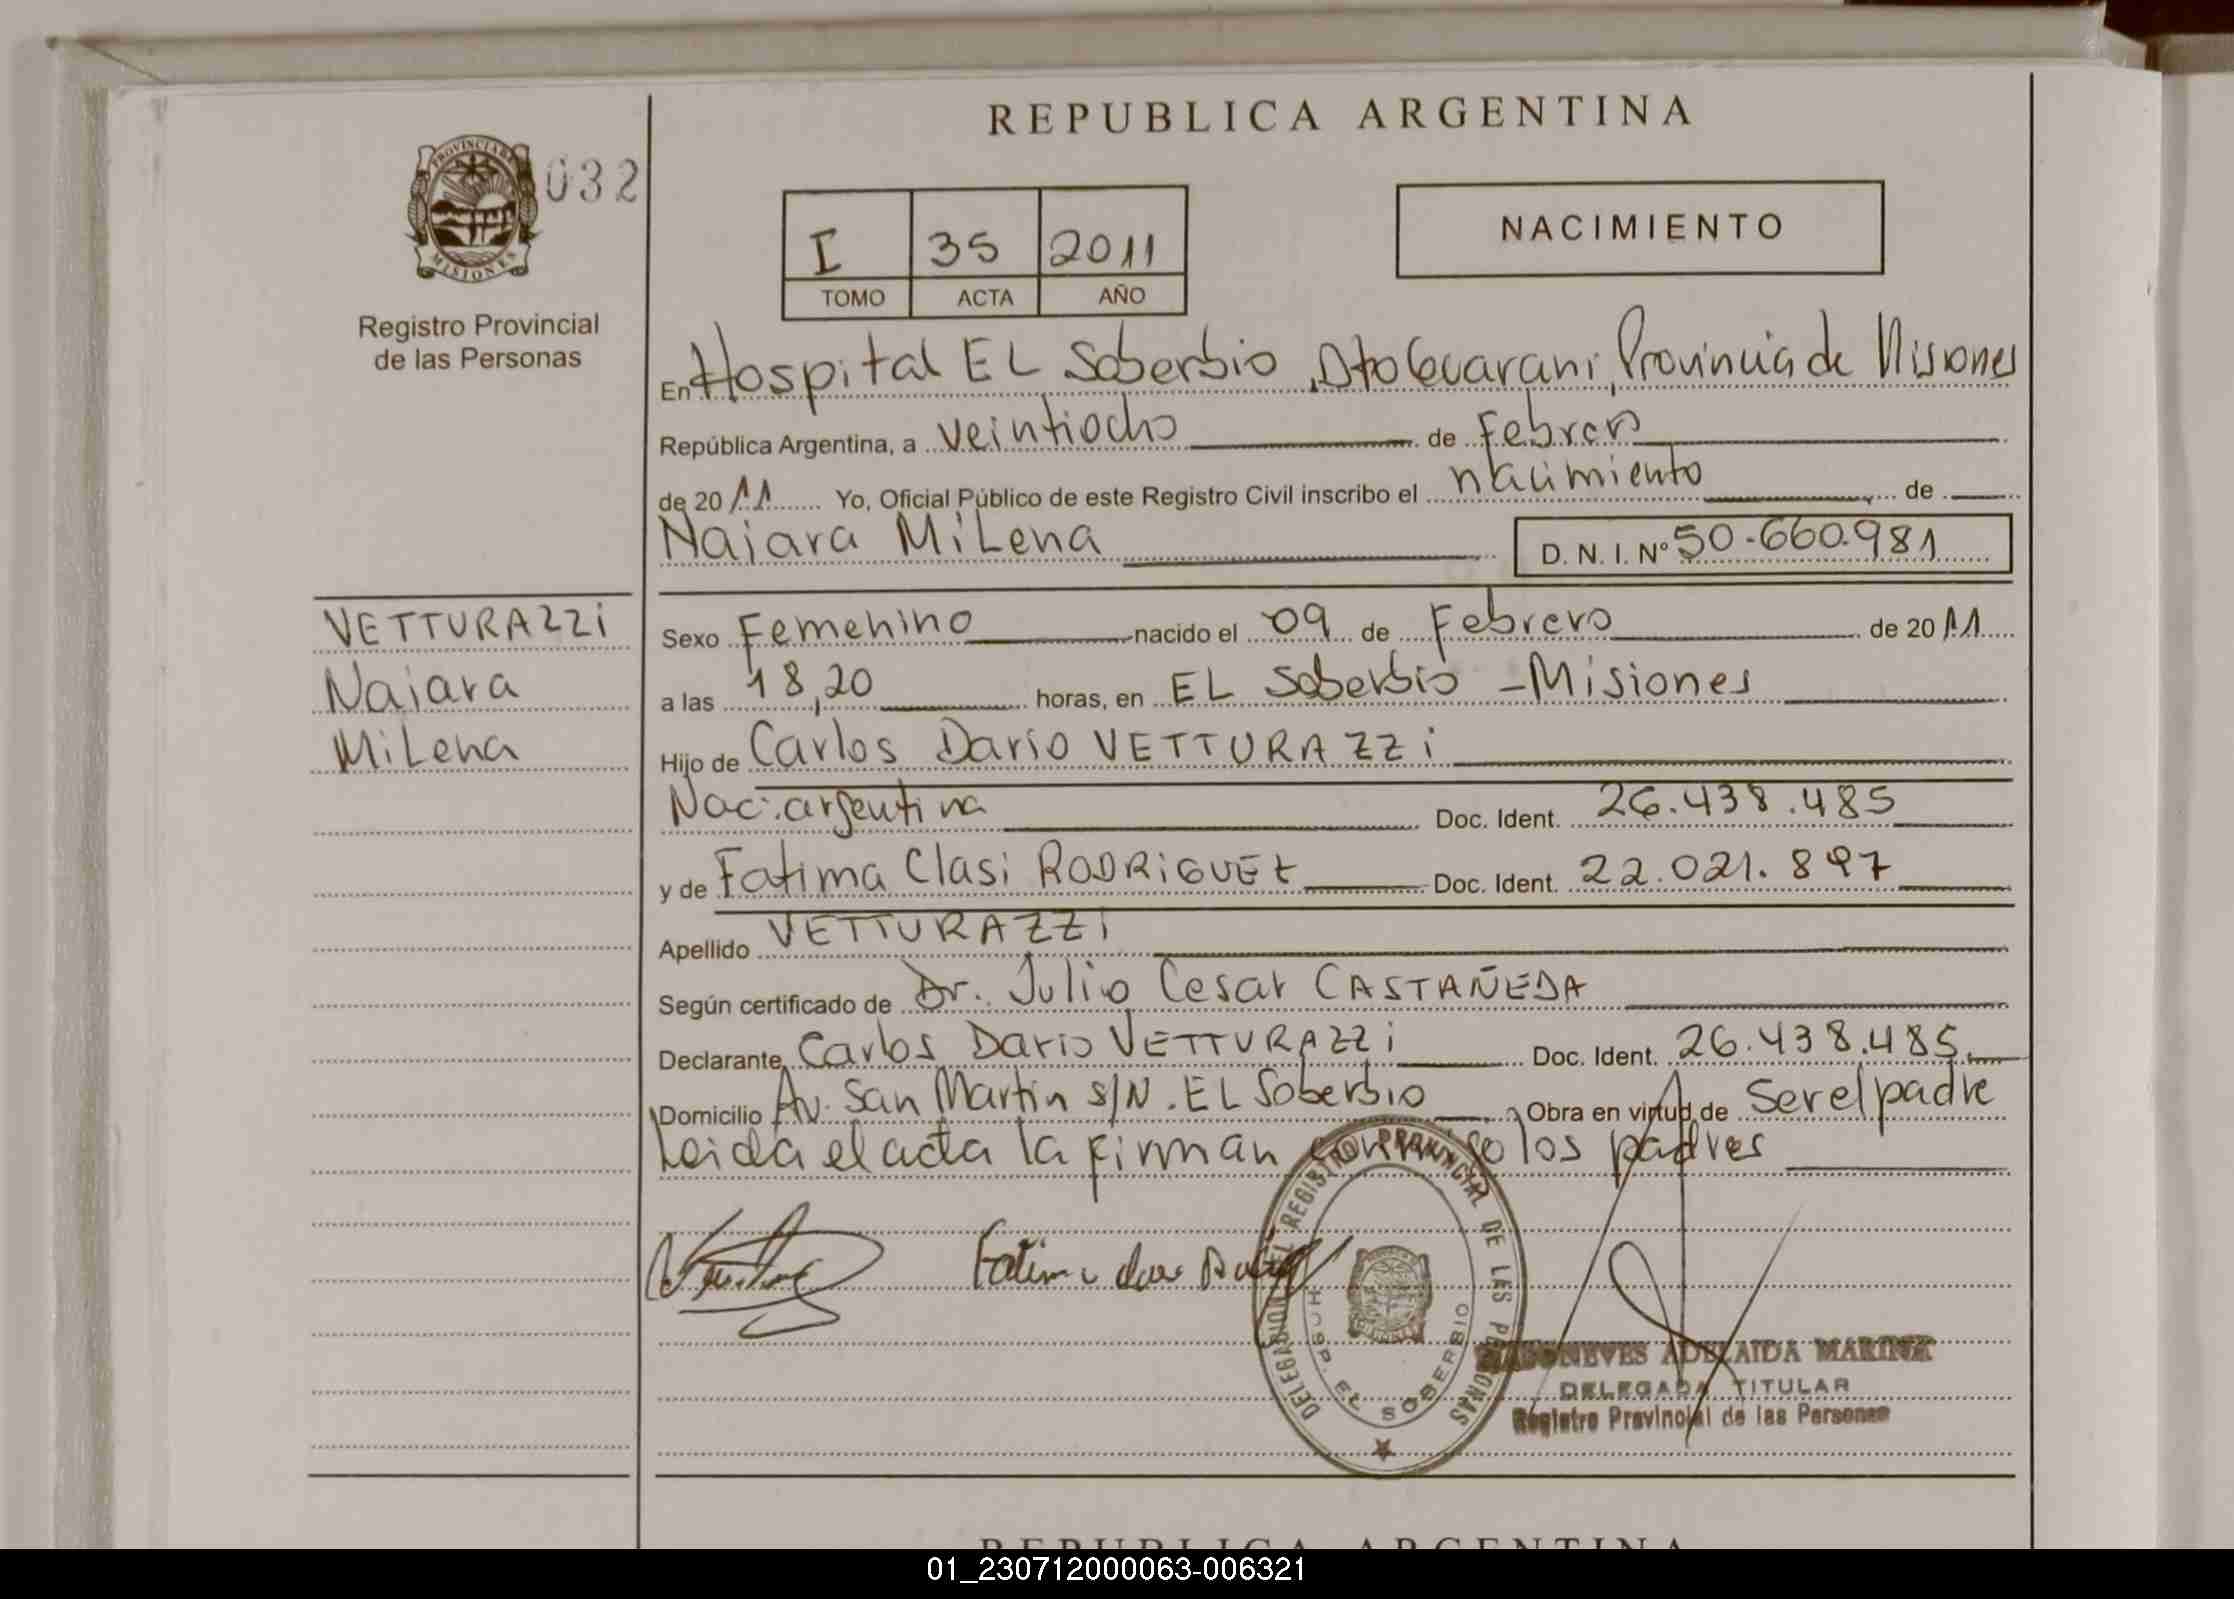 REPUBLICA ARGENTINA
PROVINCIA DE
MISIONES
032
Registro Provincial
de las Personas
I 35 2011
TOMO ACTA AÑO
NACIMIENTO
En Hospital EL Soberbio, Dto Guarani, Provincia de Misiones
República Argentina, a veintiocho de Febrero
de 2011 Yo, Oficial Público de este Registro Civil inscribo el nacimiento de
Naiara MiLena D. N. I. Nº 50.660.981
VETTURAZZi
Naiara
MiLena
Sexo Femenino nacido el 09 de Febrero de 2011
a las 18,20 horas, en EL Soberbio - Misiones
Hijo de Carlos Dario VETTURAZZi
Nac: argentina Doc. Ident. 26.438.485
y de Fatima Clasi RODRiGUEZ Doc. Ident. 22.021.897
Apellido VETTURAZZi
Según certificado de Dr. Julio Cesar CASTAÑEDA
Declarante Carlos Dario VETTURAZZi Doc. Ident. 26.438.485
Domicilio Av. San Martin s/N. EL Soberbio Obra en virtud de Ser el padre
Leida el acta la firman los padres
Fatima
DELEGACION DEL REGISTRO PROVINCIAL DE LAS PERSONAS
HOSP. EL SOBERBIO
ADELAIDA MARINA
DELEGADA TITULAR
Registro Provincial de las Personas
REPUBLICA ARGENTINA
01_230712000063-006321